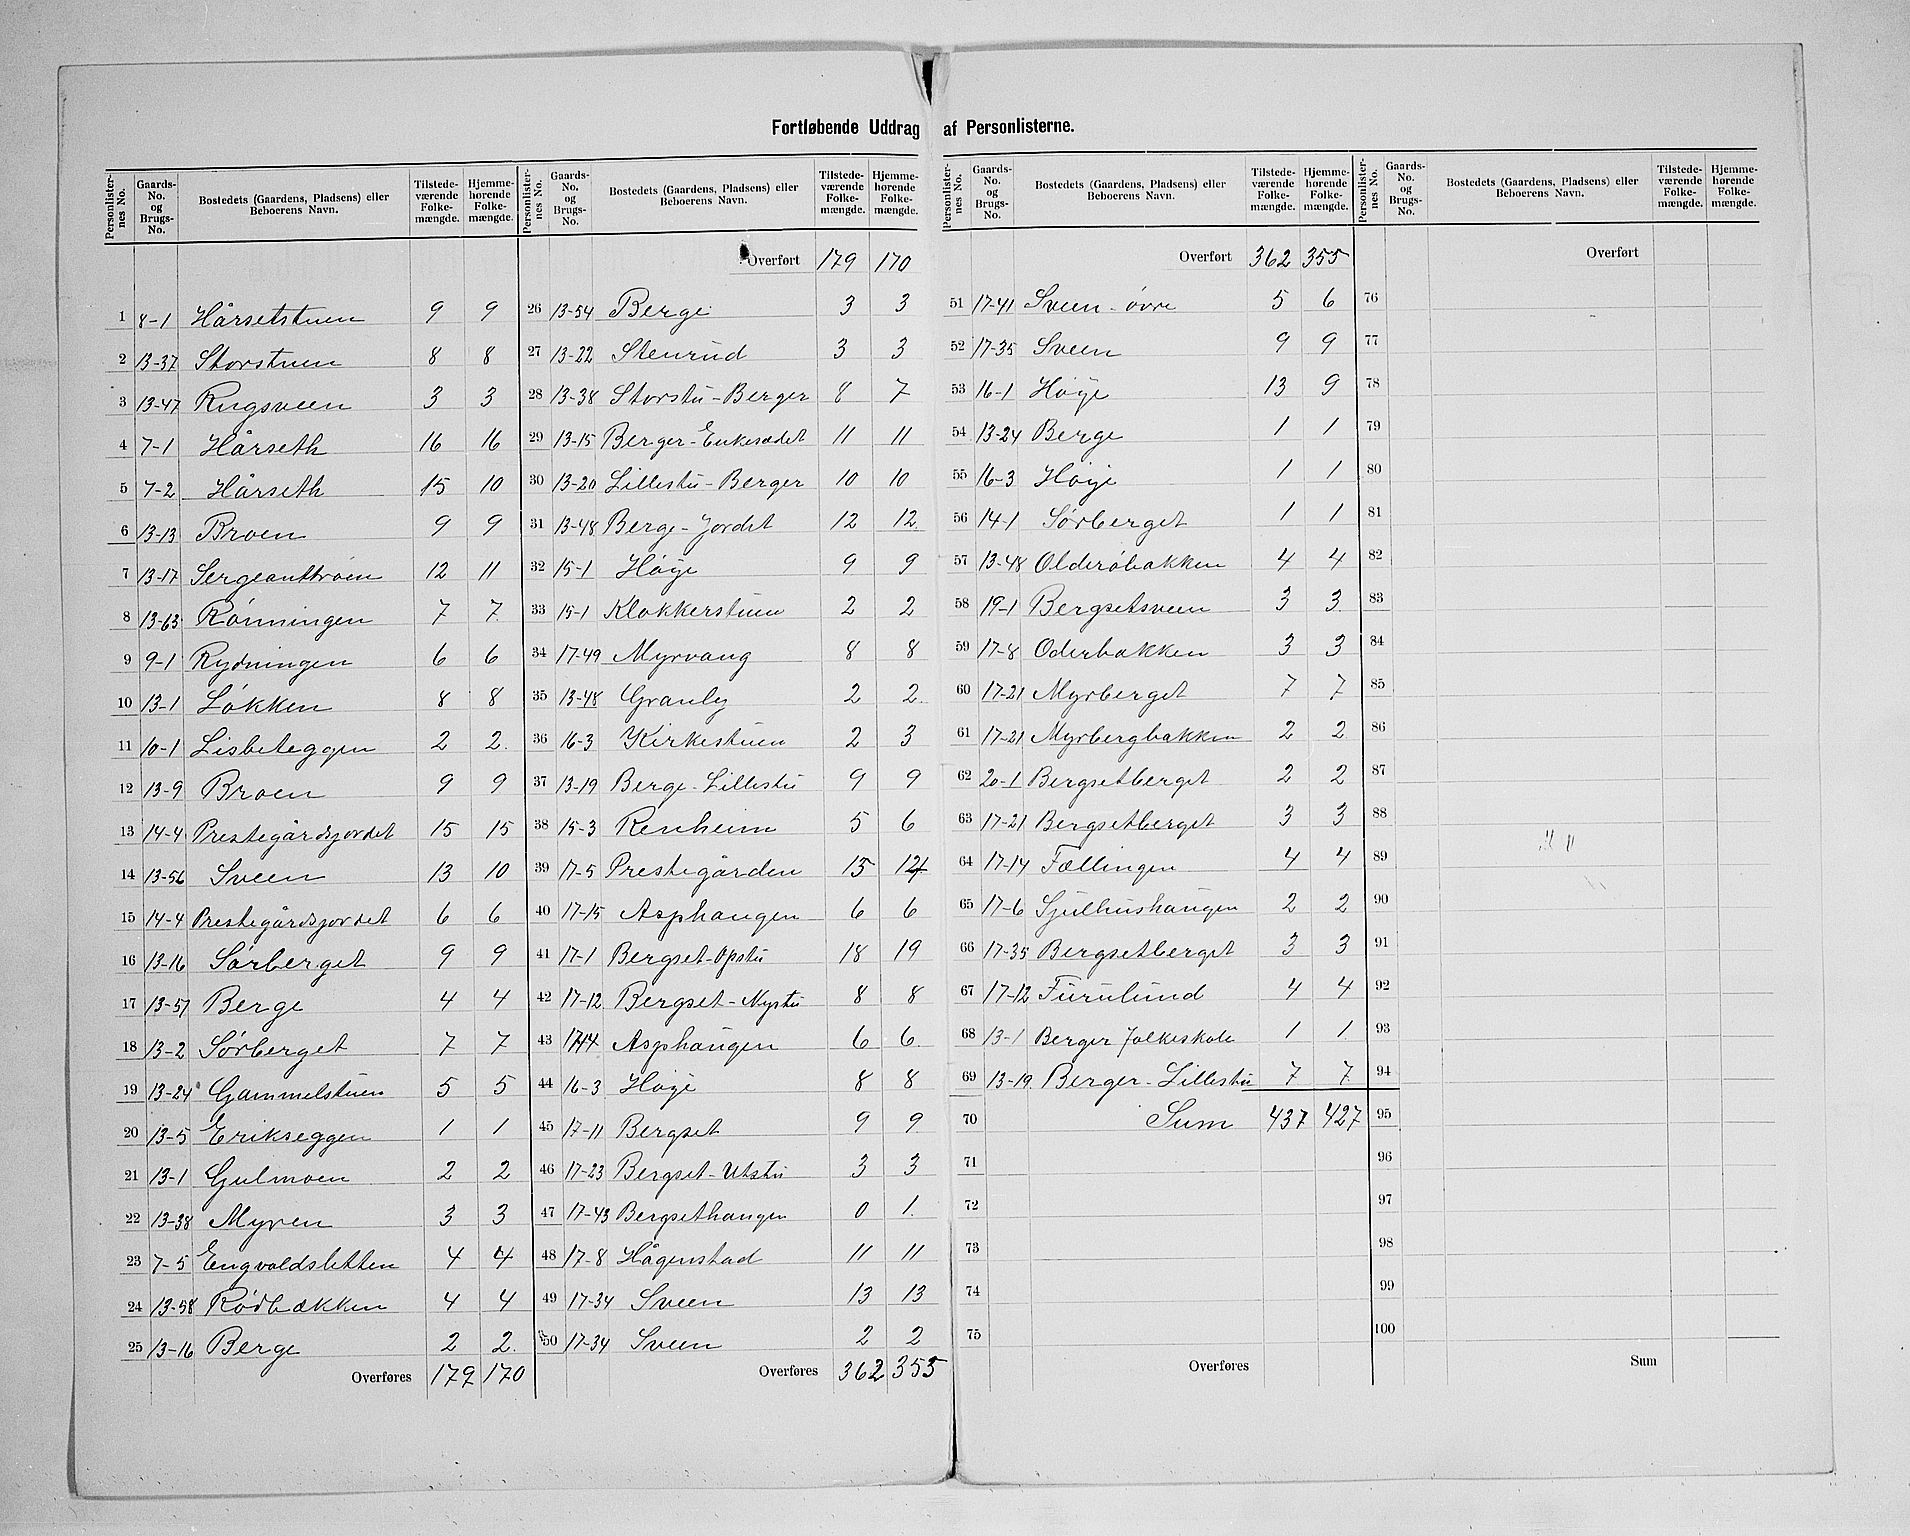 Fortløbende Uddrag af Personlisterne.
Personlister-nes No. Gaards-No. og Brugs-No. Bostedets (Gaardens, Pladsens) eller Beboerens Navn. Tilstede-værende Folke-mængde. Hjemme-hørende Folke-mængde.
1 8-1 Hårsetstuen 9 9
2 13-37 Storstuen 8 8
3 13-47 Rugsveen 3 3
4 7-1 Hårseth 16 16
5 7-2 Hårseth 15 10
6 13-13 Broen 9 9
7 13-17 Sergeanttrøen 12 11
8 13-63 Rønningen 7 7
9 9-1 Rydningen 6 6
10 13-1 Løkken 8 8
11 10-1 Lisbeteggen 2 2
12 13-9 Broen 9 9
13 14-4 Prestegårdsjordet 15 15
14 13-56 Sveen 13 10
15 14-4 Prestegårdsjordet 6 6
16 13-16 Sørberget 9 9
17 13-51 Berge 4 4
18 13-2 Sørberget 7 7
19 13-24 Gammelstuen 5 5
20 13-5 Erikseggen 1 1
21 13-1 Gulmoen 2 2
22 13-38 Myren 3 3
23 7-5 Engvoldsletten 4 4
24 13-58 Rødbækken 4 4
25 13-16 Berge 2 2
Overføres 179 170
Personlister-nes No. Gaards-No. og Brugs-No. Bostedets (Gaardens, Pladsens) eller Beboerens Navn. Tilstede-værende Folke-mængde. Hjemme-hørende Folke-mængde.
Overført 179 170
26 13-54 Berge 3 3
27 13-22 Stenrud 3 3
28 13-38 Storstu-Berger 8 7
29 13-15 Berger-Enkesædet 11 11
30 13-20 Lillestu-Berger 10 10
31 13-48 Berge-Jordet 12 12
32 15-1 Høye 9 9
33 15-1 Klokkerstuen 2 2
34 17-49 Myrvang 8 8
35 13-48 Granly 2 2
36 16-3 Kirkestuen 2 3
37 13-19 Berge-Lillestu 9 9
38 15-3 Renheim 5 6
39 17-5 Prestegården 15 14
40 17-15 Asphaugen 6 6
41 17-1 Bergset-Opstu 18 19
42 17-12 Bergset-Nystu 8 8
43 17-14 Asphaugen 6 6
44 16-3 Høye 8 8
45 17-11 Bergset 9 9
46 17-23 Bergset-Utstu 3 3
47 17-43 Bergsethaugen 0 1
48 17-8 Hågenstad 11 11
49 17-34 Sveen 13 13
50 17-34 Sveen 2 2
Overføres 362 355
Personlister-nes No. Gaards-No. og Brugs-No. Bostedets (Gaardens, Pladsens) eller Beboerens Navn. Tilstede-værende Folke-mængde. Hjemme-hørende Folke-mængde.
Overført 362 355
51 17-41 Sveen-øvre 5 6
52 17-35 Sveen 9 9
53 16-1 Høye 13 9
54 13-24 Berge 1 1
55 16-3 Høye 1 1
56 14-1 Sørberget 1 1
57 13-48 Olderøbakken 4 4
58 19-1 Bergsetsveen 3 3
59 17-8 Oderbakken 3 3
60 17-21 Myrberget 7 7
61 17-21 Myrbergbakken 2 2
62 20-1 Bergsetberget 2 2
63 17-21 Bergsetberget 3 3
64 17-14 Fællingen 4 4
65 17-6 Sjulhushaugen 2 2
66 17-35 Bergsetberget 3 3
67 17-12 Furulund 4 4
68 13-1 Berger folkeskole 1 1
69 13-19 Berger-Lillestu 7 7
70 Sum 437 427
71
72
73
74
75
Overføres
Personlister-nes No. Gaards-No. og Brugs-No. Bostedets (Gaardens, Pladsens) eller Beboerens Navn. Tilstede-værende Folke-mængde. Hjemme-hørende Folke-mængde.
Overført
76
77
78
79
80
81
82
83
84
85
86
87
88
89
90
91
92
93
94
95
96
97
98
99
100
Sum